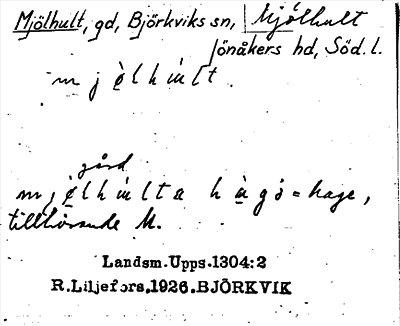 Mjölhult, gd, Björkviks sn, Mjölhult
Jönåkers hd, Söd. l.
m j ö̀ l h ú l t.
gård
m j ö̀ l h ú l t a h à g ò = hage,
tillhörande M.
Landsm.Upps.1304:2
R.Liljefors.1926.BJÖRKVIK